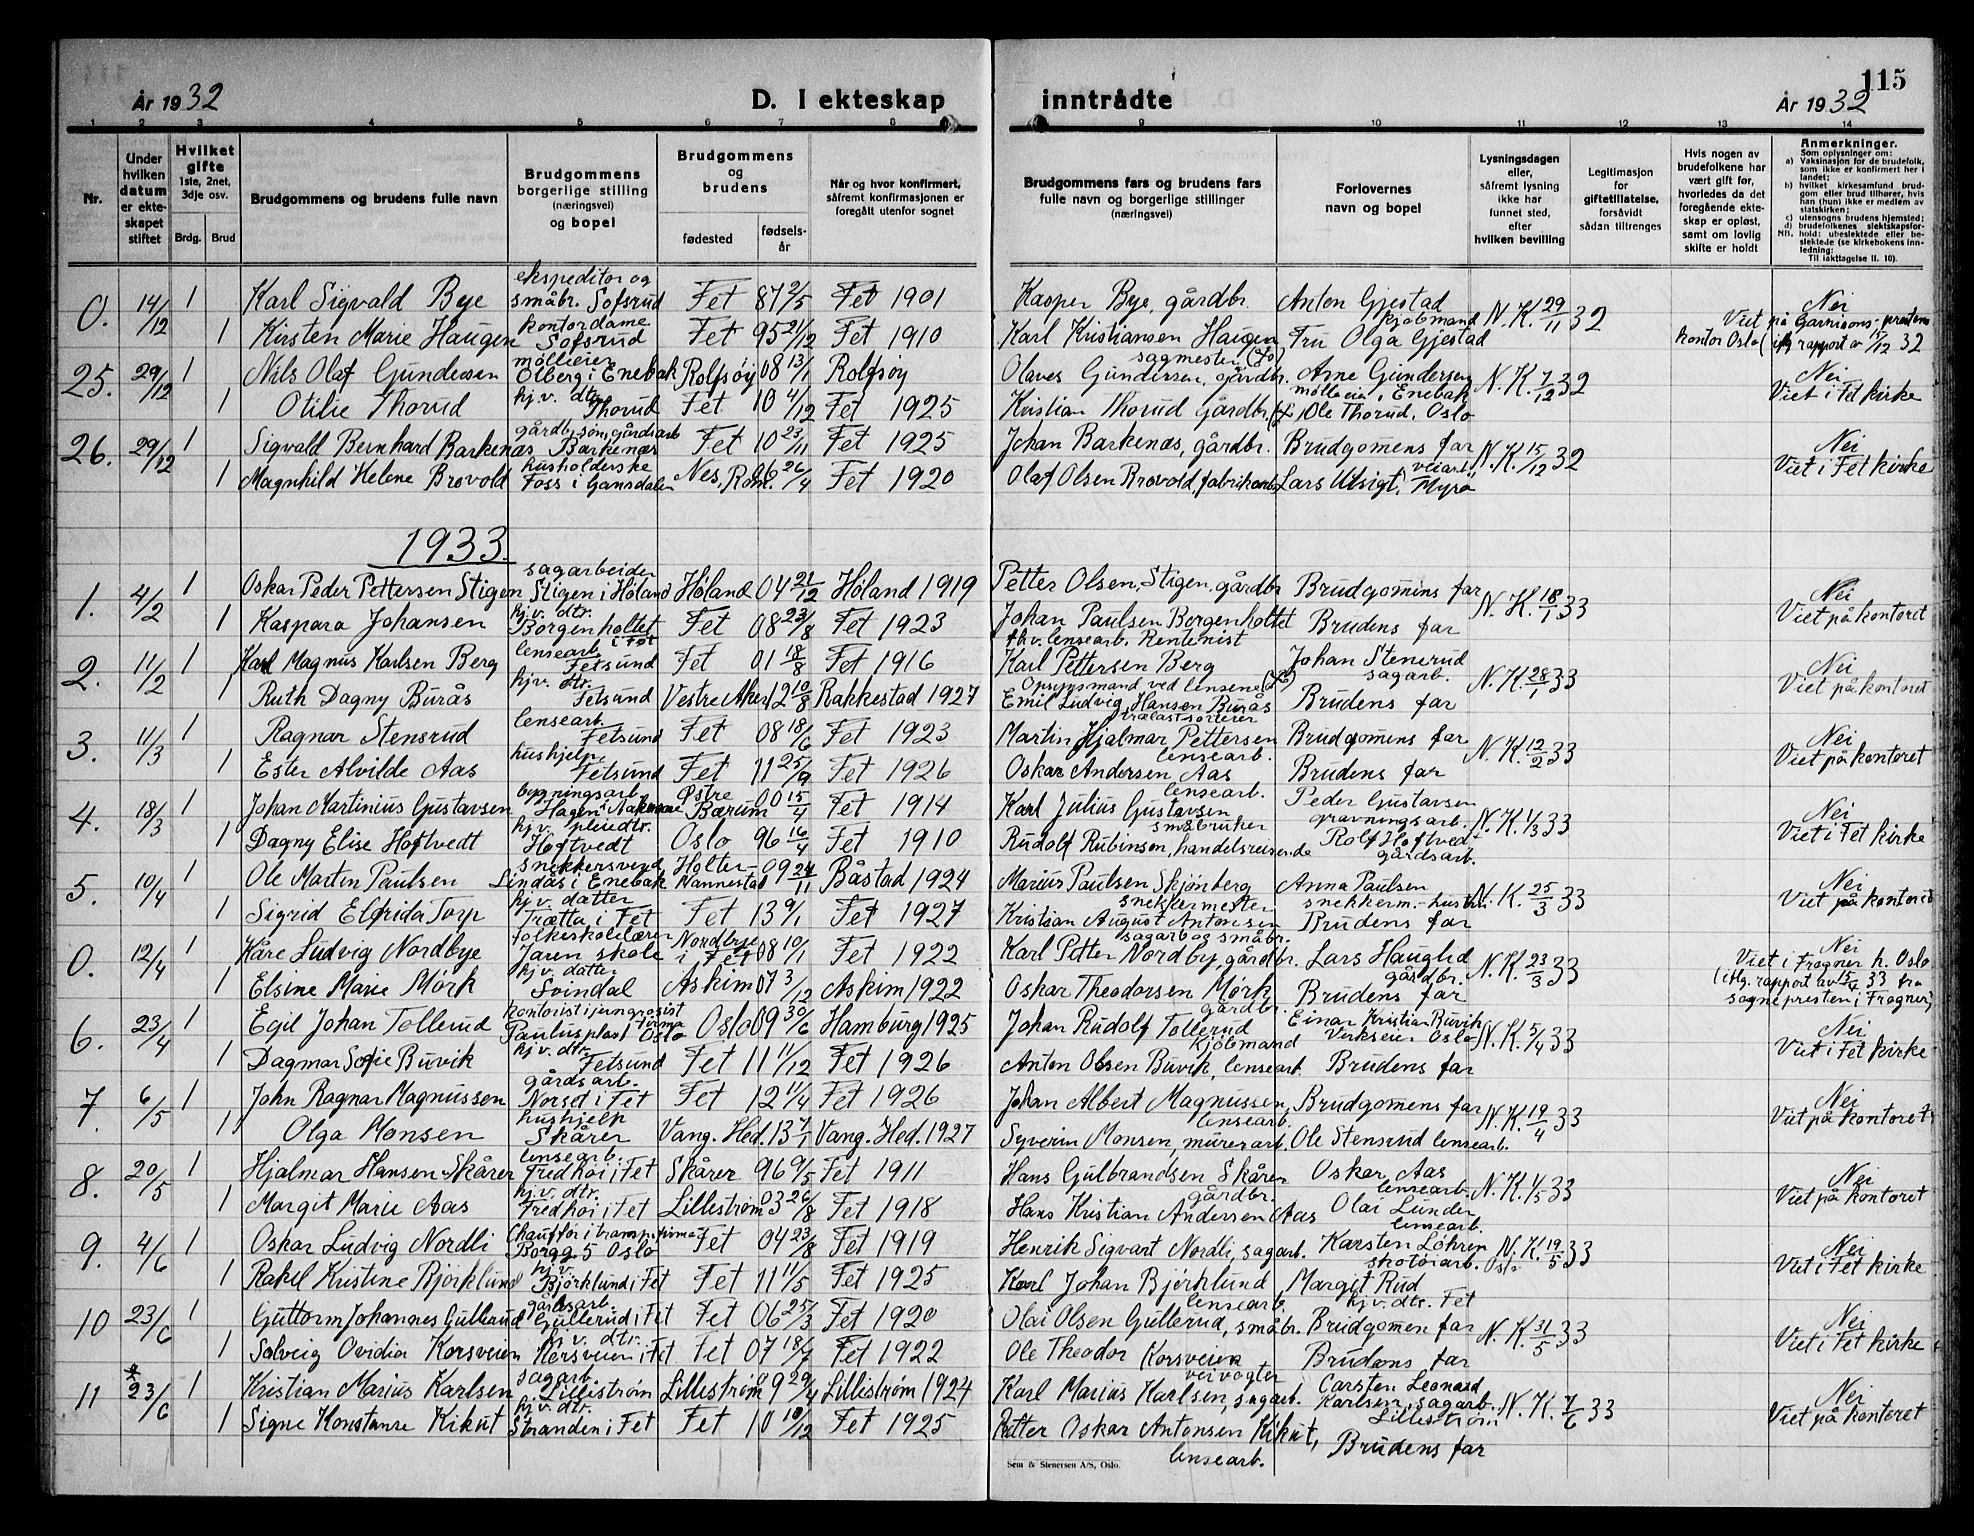 År 1932
D. I ekteskap inntrådte
115
År 1932
1 2 3 4 5 6 7 8 9 10 11 12 13 14
Nr.
Under hvilken datum er ekteskapet stiftet
Hvilket gifte 1ste, 2net, 3dje osv.
Brdg. Brud
Brudgommens og brudens fulle navn
Brudgommens borgerlige stilling (næringsvei) og bopel
Brudgommens og brudens
fødested fødselsår
Når og hvor konfirmert, såfremt konfirmasjonen er foregått utenfor sognet
Brudgommens fars og brudens fars fulle navn og borgerlige stillinger (næringsvei)
Forlovernes navn og bopel
Lysningsdagen eller, såfremt lysning ikke har funnet sted, efter hvilken bevilling
Legitimasjon for giftetillatelse, forsåvidt sådan tiltrenges
Hvis nogen av brudefolkene har vært gift før, hvorledes da det foregående ekteskap er opløst, samt om lovlig skifte er holdt
Anmerkninger.
Som oplysninger om:
a) Vaksinasjon for de brudefolk, som ikke er konfirmert her i landet;
b) hvilket kirkesamfund brudgom eller brud tilhører, hvis han (hun) ikke er medlem av statskirken;
c) utensogns brudens hjemsted;
d) brudefolkenes slektskapsforhold: ubeslektede eller beslektede (se kirkebokens innledning:
NB. Til iakttagelse II. 10).
0. 14/12 1 Karl Sigvald Bye ekspeditor og småbr. Sofsrud Fet 87 2/5 Fet 1901 Kasper Bye, gårdbr. Anton Gjestad kjøbmand N.K. 29/11 32 Nei
1 Kirsten Marie Haugen kontordame Sofsrud Fet 95 21/12 Fet 1910 Karl Kristiansen Haugen sagmester Fru Olga Gjestad Viet på Garnisons-prestens kontor Oslo (iflg rapport av 15/12 32
25. 29/12 1 Nils Olaf Gundersen mølleeier Ølberg i Enebak Rolfsøy 08 13/1 Rolfsøy Olaves Gundersen, gårdbr. Arne Gundersen mølleeier i Enebak N.K. 7/12 32 Nei
1 Otilie Thorud hj.v. dtr. Thorud Fet 10 4/12 Fet 1925 Kristian Thorud Gårdbr. Ole Thorud, Oslo Viet i Fet kirke
26. 29/12 1 Sigvald Bernhard Barkenæs gårdbr.søn, gårdsarb Barkenæs Fet 10 23/11 Fet 1925 Johan Barkenæs, gårdbr. Brudgomens far N.K. 15/12 32 Nei
1 Magnhild Helene Brovold husholderske Foss i Gansdalen Nes, Rom. 06 26/4 Fet 1920 Olaf Olsen Brovold, fabrikarb. Lars Utsigt, veiarb. Myra Viet i Fet kirke
1933.
1. 4/2 1 Oskar Peder Pettersen Stigen sagarbeider Stigen i Høland Høland 04 21/12 Høland 1919 Petter Olsen, Stigen, gårdbr Brudgomens far N.K. 18/1 33 Nei
1 Kaspara Johansen hj.v. dtr. Borgenholtet i Fet Fet 08 23/8 Fet 1923 Johan Paulsen Borgenholtet fhv. lensearb. Rentenist Brudens far Viet på kontoret
2. 11/2 1 Karl Magnus Karlsen Berg lensearb Fetsund Fet 01 18/8 Fet 1916 Karl Pettersen Berg Opsynsmand ved lensene Johan Stenerud sagarb. N.K. 28/1 33 Nei
1 Ruth Dagny Burås hjv. dtr. Fetsund Vestre Aker 12 10/8 Rakkestad 1927 Emil Ludvig Hansen Burås Brudens far Viet på kontoret
3. 11/3 1 Ragnar Stensrud lensearb. Fetsund Fet 08 18/6 Fet 1923 Martin Hjalmar Pettersen lensearb. Brudgomens far N.K. 12/2 33 Nei
1 Ester Alvilde Aas hushjelp Fetsund Fet 11 25/9 Fet 1926 Oskar Andersen Aas lensearb. Brudens far Viet på kontoret
4. 18/3 1 Johan Martinius Gustavsen bygningsarb. Hagen i Østre Bærum 00 15/4 Fet 1914 Karl Julius Gustavsen småbruker Peder Gustavsen gravningsarb. N.K. 1/3 33 Nei
1 Dagny Elise Hoftvedt hj.v. pleiedtr. Hoftvedt Oslo 96 16/4 Fet 1910 Rudolf Rubinson, handelsreisende Rolf Hoftvedt gårdsarb. Viet i Fet kirke
5. 10/4 1 Ole Marten Paulsen snekkersvend Lindås i Enebak Holter 09 24/11 Båstad 1924 Marius Paulsen Skjønberg snekkermester Anna Paulsen snekkerm.- N.K. 25/3 33 Nei
1 Sigrid Elfrida Torp hj.v. datter Trætta i Fet Fet 13 9/1 Fet 1927 Kristian August Antonsen sagarb og småbr. Brudens far Viet på kontoret
0. 12/4 1 Kåre Ludvig Nordbye folkeskolelærer Jaren skole Nordbye i Fet 08 10/1 Fet 1922 Karl Petter Nordby, gårdbr. Lars Hauglid gårdbr. N.K. 23/3 33 Nei
1 Elsine Marie Mørk hj.v. datter Svindal Askim 07 3/12 Askim 1922 Oskar Theodorsen Mørk gårdbr. Brudens far Viet i Frogner k. Oslo (iflg. rapport av 15/4 33 fra sognepresten i Frogner)
6. 23/4 1 Egil Johan Tollerud kontorist i jungrosist firma Paulusplass Oslo Oslo 09 30/6 Hamburg 1925 Johan Rudolf Tollerud Kjøbmand Einar Kristian Buvik Verkseier Oslo N.K. 5/4 33 Nei
1 Dagmar Sofie Buvik hj.v. dtr. Fetsund Fet 11 11/12 Fet 1926 Anton Olsen Buvik, lensearb Brudens far Viet i Fet kirke
7. 6/5 1 John Ragnar Magnussen gårdsarb. Norset i Fet Fet 12 11/4 Fet 1926 Johan Albert Magnussen, lensearb. Brudgomens far N.K. 19/4 33 Nei
1 Olga Monsen hushjelp Skårer Vang. Hed. 13 7/1 Vang. Hed. 1927 Syverin Monsen, murerarb. Ole Stensrud lensearb. Viet på kontoret
8. 20/5 1 Hjalmar Hansen-Skårer lensearb. Fredhøi i Fet Skårer 96 9/5 Fet 1911 Hans Gulbrandsen Skårer gårdbr. Oskar Aas lensearb. N.K. 1/5 33 Nei
1 Margit Marie Aas hj.v. dtr. Fredhøi i Fet Lillestrøm 03 26/8 Fet 1918 Hans Kristian Andersen Aas Olai Lunder lensearb. Viet på kontoret
9. 4/6 1 Oskar Ludvig Nordli Chauffør i transp.firma Borgg 5 Oslo Fet 04 23/8 Fet 1919 Henrik Sigvart Nordli, sagarb. Karsten Løhren skotøiarb. N.K. Oslo 19/5 33 Nei
1 Rakel Kristine Bjørklund hj.v. Bjørklund i Fet Fet 11 11/5 Fet 1925 Karl Johan Bjørklund lensearb. Margit Rud hj.v. dtr. Fet Viet i Fet kirke
10 23/6 1 Guttorm Johannes Gullerud gårdsarb. Gullerud i Fet Fet 06 25/3 Fet 1920 Olai Olsen Gullerud, småbr. Brudgomen far N.K. 31/5 33 Nei
1 Solveig Ovidia Korsveien hj.v. dtr. Korsveien i Fet Fet 07 18/7 Fet 1922 Ole Theodor Korsveien veivogter Brudens far Viet i Fet kirke
11 23/6 1 Kristian Marius Karlsen sagarb. Lillestrøm Lillestrøm 09 29/4 Lillestrøm 1924 Karl Marius Karlsen, sagarb. Carsten Leonard Karlsen, sagarb. Lillestrøm N.K. 7/6 33 Nei
1 Signe Konstanse Kikut hj.v. dtr. Stranden i Fet Fet 10 10/12 Fet 1925 Petter Oskar Antonsen Kikut, lensearb. Brudens far Viet på kontoret
Sem & Stenersen A/S, Oslo.